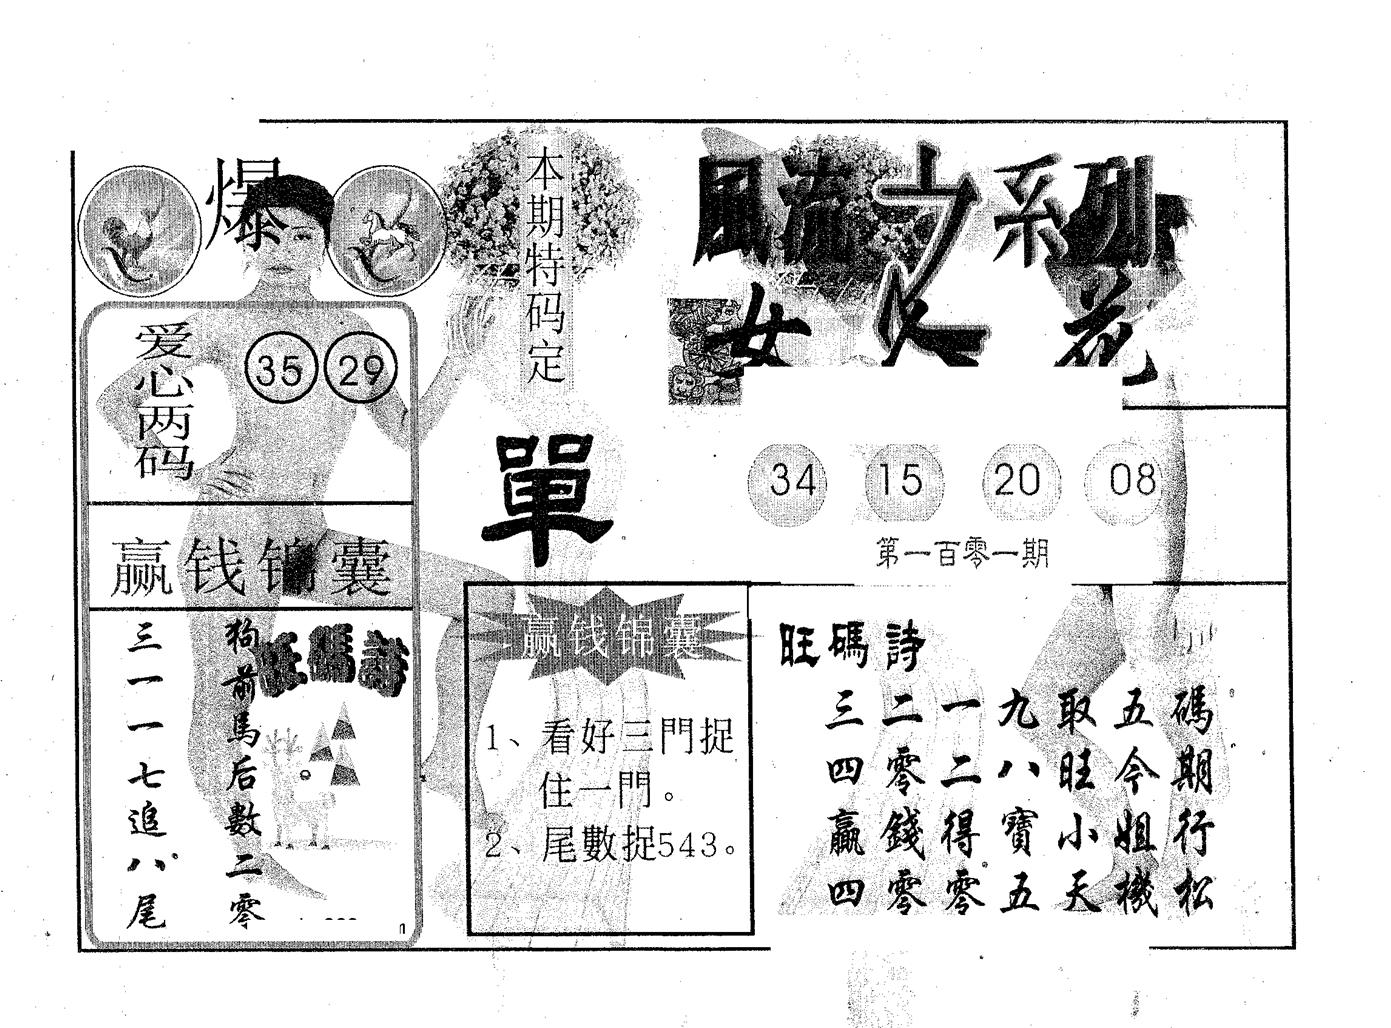 爆
爱心两码
35 29
赢钱锦囊
旺碼詩
狗前馬后數二零
三一一七追八尾
本期特码定
單
赢钱锦囊
1、看好三門捉
住一門。
2、尾數捉543。
風流之系列
女人花
34 15 20 08
第一百零一期
旺碼詩
三二一九取五碼
四零二八旺今期
贏錢得寶小姐行
四零零五天機松